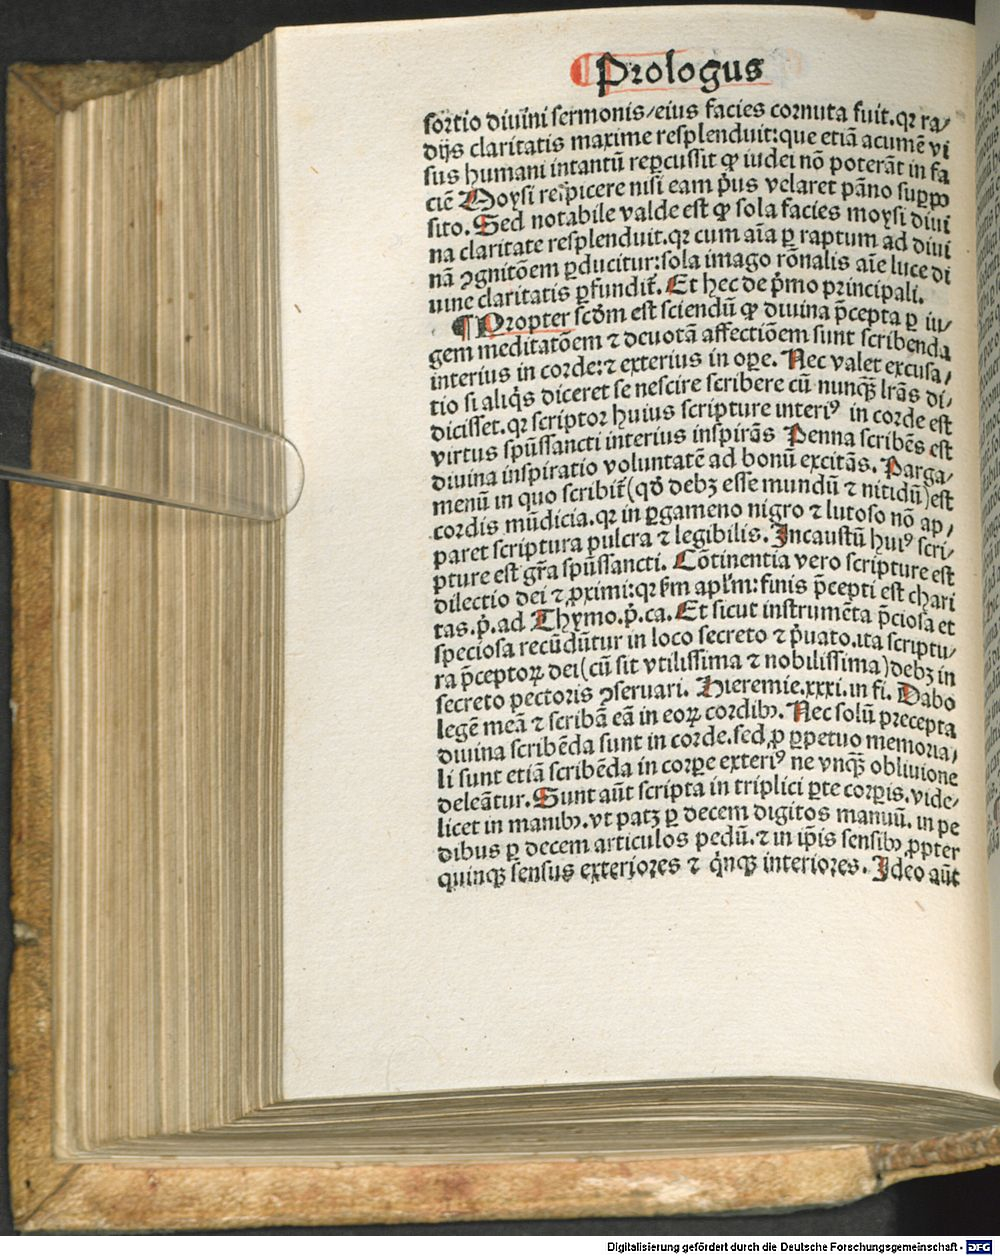 ¶ Prologus
sortio diuini sermonis/eius facies cornuta fuit.qꝛ ra/
dijs claritatis maxime resplenduit:que etiā acumē vi
sus humani intantū reꝑcussit ꝙ iudei nō poterāt in fa
ciē Moysi respicere nisi eam pͥus velaret pāno supꝑpo
sito. Sed notabile valde est ꝙ sola facies moysi diui
na claritate resplenduit.qꝛ cum aīa ꝑ raptum ad diui
nā ꝯgnitōem ꝑducitur:sola imago rōnalis aīe luce di
uine claritatis ꝑfundit᷑. Et hec de pͥmo principali.
¶ Propter scd̄m est sciendū ꝙ diuina p̄cepta ꝑ iu/
gem meditatōem ⁊ deuotā affectiōem sunt scribenda
interius in corde:⁊ exterius in oꝑe. Nec valet excusa/
tio si aliqͥs diceret se nescire scribere cū nunqꝫ lr̄as di/
dicisset.qꝛ scriptor huius scripture interiꝰ in corde est
virtus spūssancti interius inspirās Penna scribēs est
diuina inspiratio voluntatē ad bonū excitās. Parga/
menū in quo scribit᷑(qd̄ debꝫ esse mundū ⁊ nitidū)est
cordis mūdicia.qꝛ in ꝑgameno nigro ⁊ lutoso nō ap/
paret scriptura pulcra ⁊ legibilis. Incaustū huiꝰ scri/
pture est gr̄a spūssancti. Cōtinentia vero scripture est
dilectio dei ⁊ ꝓximi:qꝛ km̄ apl'm:finis p̄cepti est chari
tas.pͥ.ad Thymo.pͥ.ca. Et sicut instrumēta p̄ciosa et
speciosa recūdūtur in loco secreto ⁊ pͥuato.ita scriptu/
ra p̄ceptoꝝ dei(cū sit vtilissima ⁊ nobilissima)debꝫ in
secreto pectoris ꝯseruari. Hieremie.xxxi.in fi. Dabo
legē meā ⁊ scribā eā in eoꝝ cordibꝫ. Nec solū precepta
diuina scribēda sunt in corde.sed ꝓ ꝑpetuo memoria/
li sunt etiā scribēda in corꝑe exteriꝰ ne vnqꝫ obliuione
deleātur. Sunt aūt scripta in triplici ꝑte corꝑis.vide/
licet in manibꝫ.vt patꝫ ꝑ decem digitos manuū. in pe
dibus ꝑ decem articulos pedū.⁊ in ip̄is sensibꝫ ꝓpter
quinqꝫ sensus exteriores ⁊ qͥnqꝫ interiores. Ideo aūt
Digitalisierung gefördert durch die Deutsche Forschungsgemeinschaft - DFG